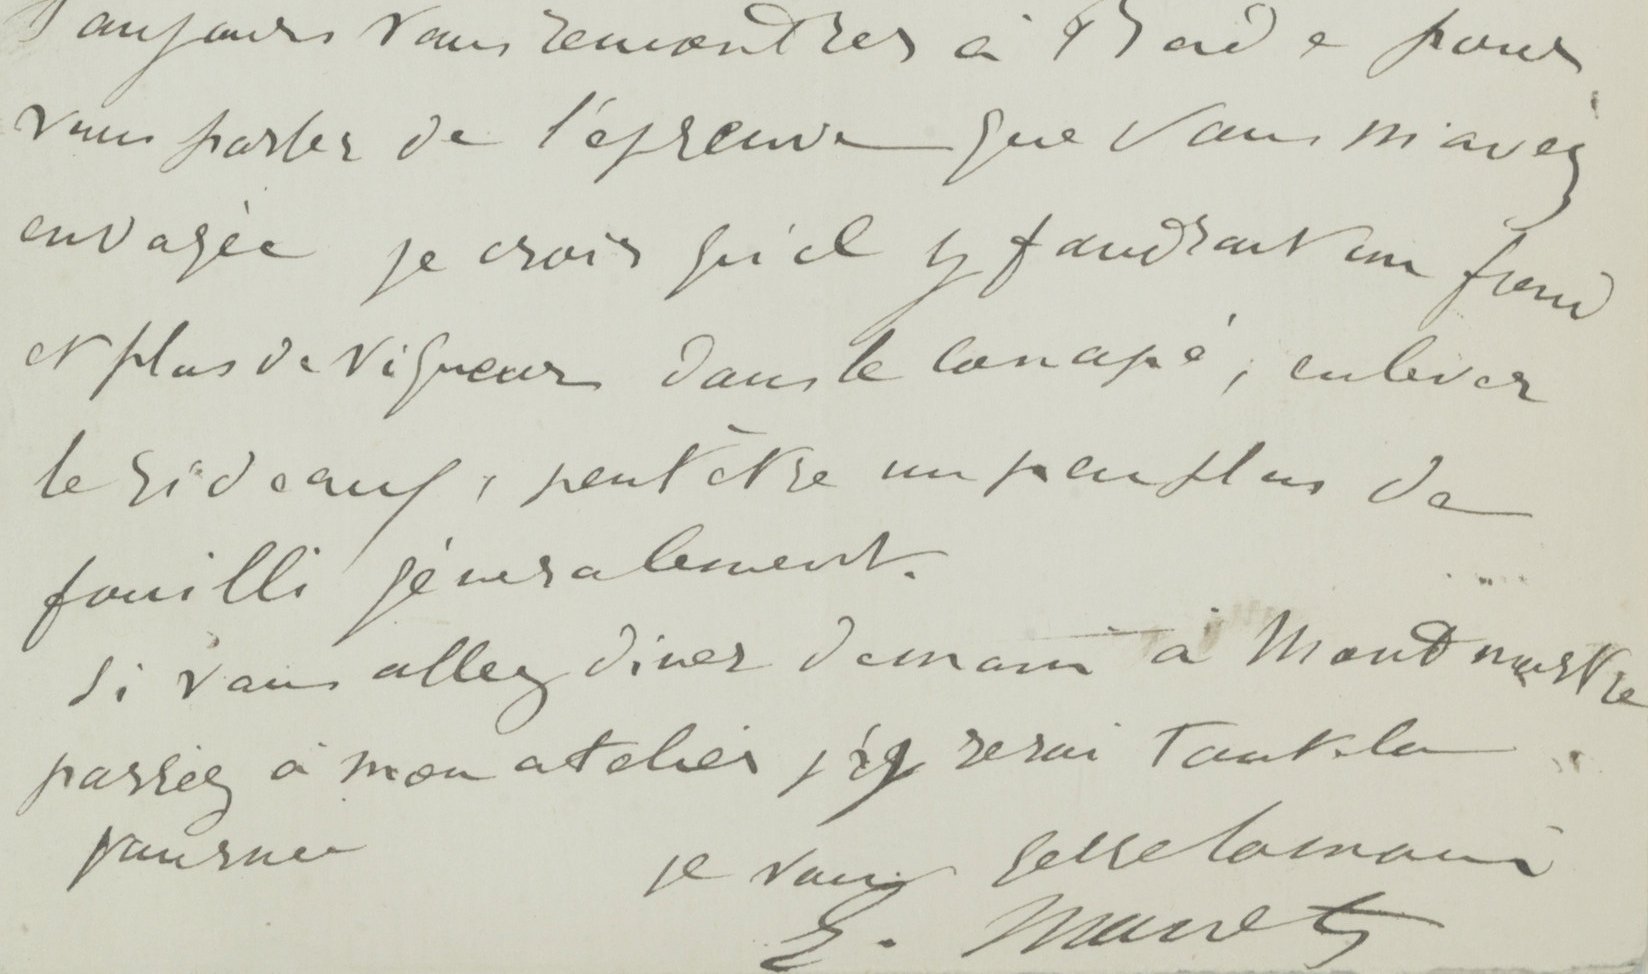 toujours vous rencontrer à Bade pour
vous parler de l'épreuve que vous m'avez
envoyée je crois qu'il y faudrait un fond
et plus de vigueur dans le canapé, enlever
le rideau, peut être un peu plus de
fouilli géneralement.
si vous allez diner demain à Montmartre
passez à mon atelier j'y serai toute la
journée je vous serre la main
E. Manet